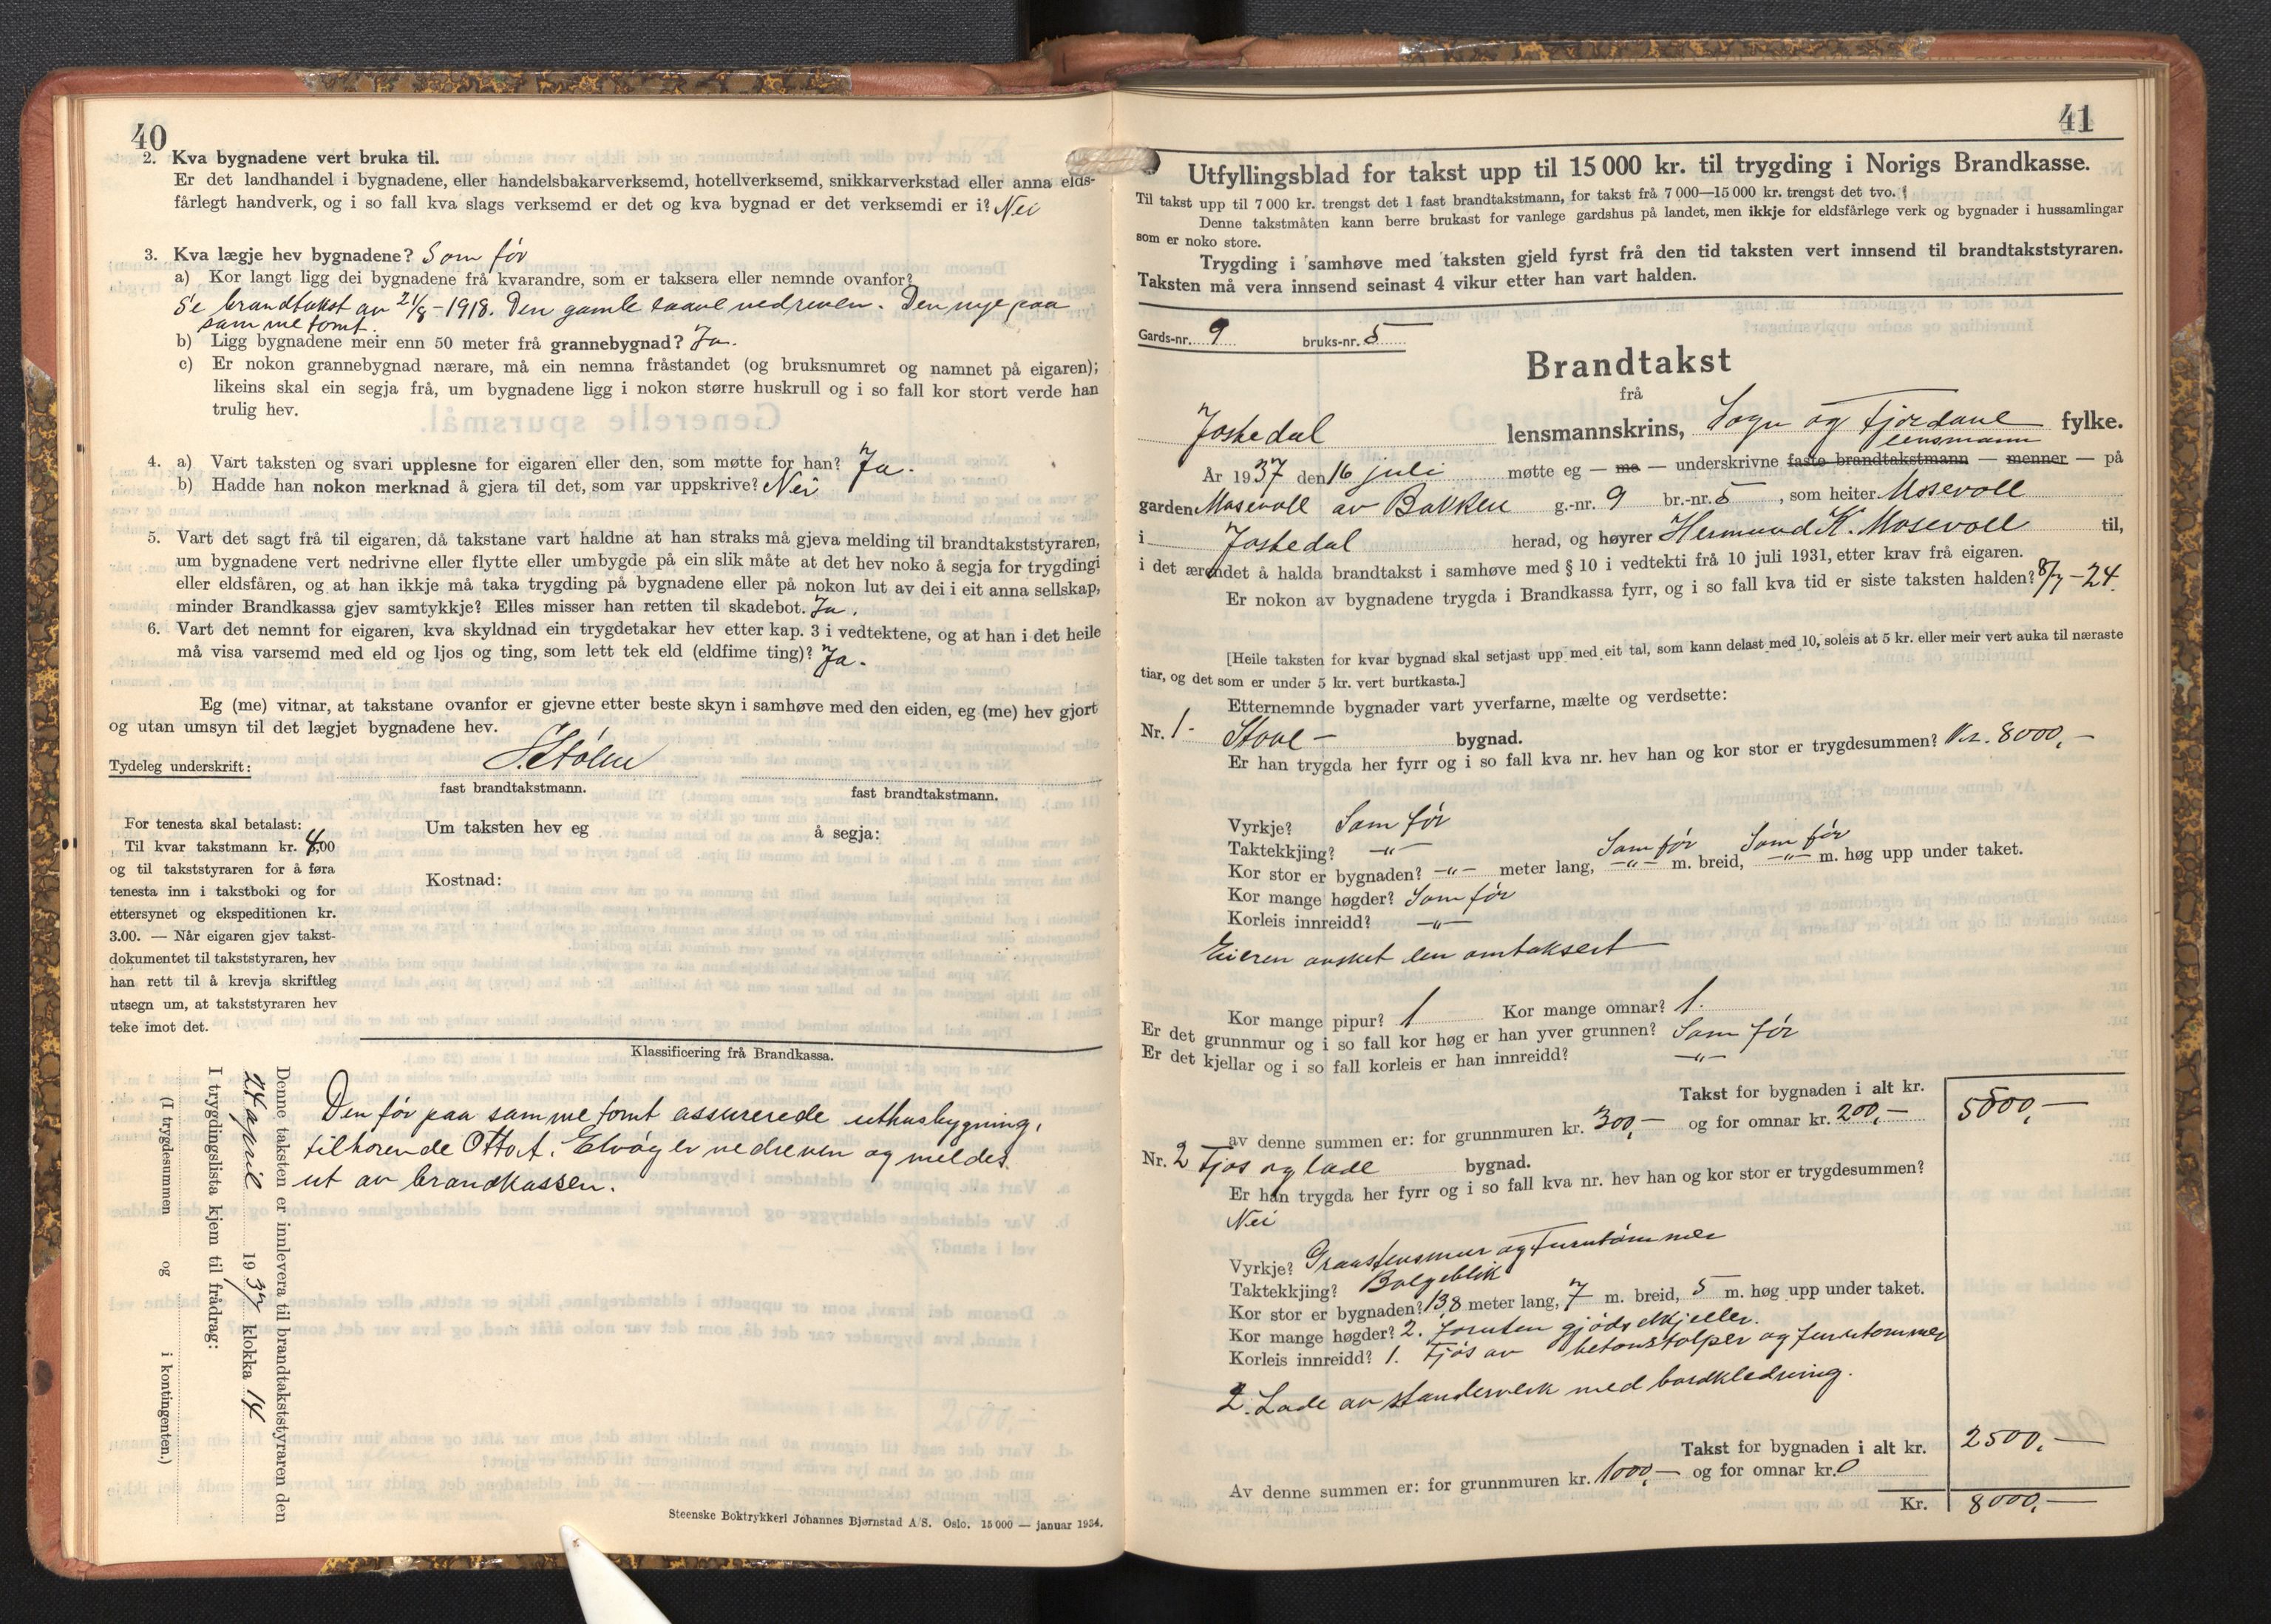 40
2. Kva bygnadene vert bruka til.
Er det landhandel i bygnadene, eller handelsbakarverksemd, hotellverksemd, snikkarverkstad eller anna elds-
fårlegt handverk, og i so fall kva slags verksemd er det og kva bygnad er det verksemdi er i? Nei
3. Kva lægje hev bygnadene? Som før
a) Kor langt ligg dei bygnadene frå kvarandre, som er taksera eller nemnde ovanfor?
Se brandtakst av 21/8-1918. Den gamle laave nedreven. Den nye paa
samme tomt.
b) Ligg bygnadene meir enn 50 meter frå grannebygnad? Ja.
c) Er nokon grannebygnad nærare, må ein nemna fråstandet (og bruksnumret og namnet på eigaren);
likeins skal ein segja frå, um bygnadene ligg i nokon større huskrull og i so fall kor stort verde han
trulig hev.
4. a) Vart taksten og svari upplesne for eigaren eller den, som møtte for han? Ja.
b) Hadde han nokon merknad å gjera til det, som var uppskrive? Nei
5. Vart det sagt frå til eigaren, då takstane vart haldne at han straks må gjeva melding til brandtakststyraren,
um bygnadene vert nedrivne eller flytte eller umbygde på ein slik måte at det hev noko å segja for trygdingi
eller eldsfåren, og at han ikkje må taka trygding på bygnadene eller på nokon lut av dei i eit anna sellskap,
minder Brandkassa gjev samtykkje? Elles misser han retten til skadebot. Ja.
6. Vart det nemnt for eigaren, kva skyldnad ein trygdetakar hev etter kap. 3 i vedtektene, og at han i det heile
må visa varsemd med eld og ljos og ting, som lett tek eld (eldfime ting)? Ja.
Eg (me) vitnar, at takstane ovanfor er gjevne etter beste skyn i samhøve med den eiden, eg (me) hev gjort
og utan umsyn til det lægjet bygnadene hev.
Tydeleg underskrift:
fast brandtakstmann. fast brandtakstmann.
For tenesta skal betalast:
Til kvar takstmann kr. 4,00
og til takststyraren for å føra
tenesta inn i takstboki og for
ettersynet og ekspeditionen kr.
3.00. — Når eigaren gjev takst-
dokumentet til takststyraren, hev
han rett til å krevja skriftleg
utsegn um, at takststyraren hev
teke imot det.
Um taksten hev eg å segja:
Kostnad:
Klassificering frå Brandkassa.
Den før paa samme tomt assurerede uthusbygning,
tilhørende Otto A. Elvøy er nedreven og meldes
ut av brandkassen.
Denne taksten er innlevera til brandtakststyraren den
24 april 1937 klokka 14
I trygdingslista kjem til frådrag:
(I trygdesummen og i kontingenten.)
Steenske Boktrykkeri Johannes Bjørnstad A/S. Oslo. 15 000 — januar 1934.
41
Utfyllingsblad for takst upp til 15 000 kr. til trygding i Norigs Brandkasse.
Til takst upp til 7 000 kr. trengst det 1 fast brandtakstmann, for takst frå 7 000—15 000 kr. trengst det tvo.
Denne takstmåten kann berre brukast for vanlege gardshus på landet, men ikkje for eldsfårlege verk og bygnader i hussamlingar
som er noko store.
Trygding i samhøve med taksten gjeld fyrst frå den tid taksten vert innsend til brandtakststyraren.
Taksten må vera innsend seinast 4 vikur etter han vart halden.
Gards-nr. 9 bruks-nr. 5
Brandtakst
frå
Jostedal lensmannskrins, Sogn og Fjordane fylke.
lensmann
År 1937 den 16 juli møtte eg — me — underskrivne faste brandtakstmann — menner — på
garden Mosevoll av Bakken g.-nr. 9 br.-nr. 5, som heiter Mosevoll
i Jostedal herad, og høyrer Hermund K. Mosevoll til,
i det ærendet å halda brandtakst i samhøve med § 10 i vedtekti frå 10 juli 1931, etter krav frå eigaren.
Er nokon av bygnadene trygda i Brandkassa fyrr, og i so fall kva tid er siste taksten halden? 8/7-24.
[Heile taksten for kvar bygnad skal setjast upp med eit tal, som kann delast med 10, soleis at 5 kr. eller meir vert auka til næraste
tiar, og det som er under 5 kr. vert burtkasta.]
Etternemnde bygnader vart yverfarne, mælte og verdsette:
Nr. 1. Stove — bygnad.
Er han trygda her fyrr og i so fall kva nr. hev han og kor stor er trygdesummen? Kr. 8000,-
Vyrkje? Som før
Taktekkjing? —"—
Som før Som før
Kor stor er bygnaden? —"— meter lang, —"— m. breid, —"— m. høg upp under taket.
Kor mange høgder? Som før
Korleis innreidd? —"—
Eieren ønsket den omtaksert
Kor mange pipur? 1 Kor mange omnar? 1.
Er det grunnmur og i so fall kor høg er han yver grunnen? Som før
Er det kjellar og i so fall korleis er han innreidd? —"—
Takst for bygnaden i alt kr. 5500,—
av denne summen er: for grunnmuren kr. 300,— og for omnar kr. 200,—
Nr. 2 Fjøs og lade bygnad.
Er han trygda her fyrr og i so fall kva nr. hev han og kor stor er trygdesummen?
Nei
Vyrkje? Graastensmur og Furutømmer
Taktekkjing? Bølgeblik
Kor stor er bygnaden? 13,8 meter lang, 7 m. breid, 5 m. høg upp under taket.
Kor mange høgder? 2. foruten gjødselkjeller.
Korleis innreidd? 1. Fjøs av betonstolper og furutømmer
2. Lade av standerverk med bordkledning.
Takst for bygnaden i alt kr. 2500,—
Av denne summen er: for grunnmuren kr. 1000,— og for omnar kr. 0
Kr. 8000,—